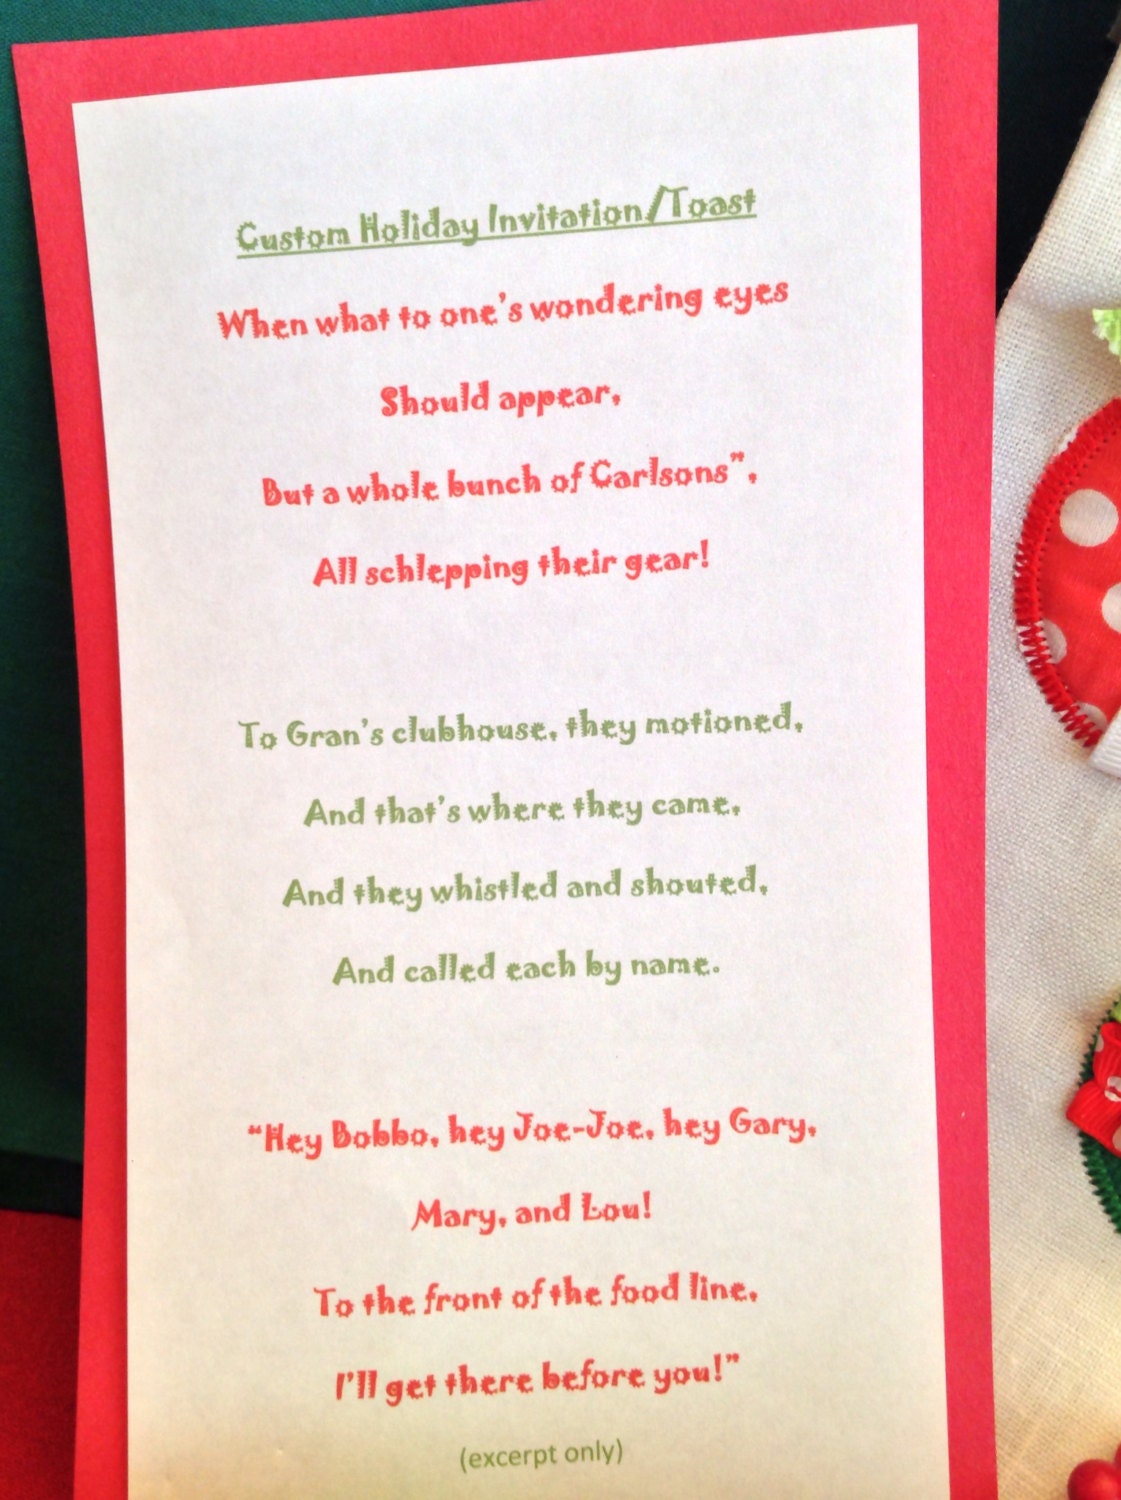 Custom Holiday Invitation/Toast
When what to one's wondering eyes
Should appear,
But a whole bunch of Carlsons",
All schlepping their gear!
To Gran's clubhouse, they motioned,
And that's where they came,
And they whistled and shouted,
And called each by name.
"Hey Bobbo, hey Joe-Joe, hey Gary,
Mary, and Lou!
To the front of the food line,
I'll get there before you!"
(excerpt only)